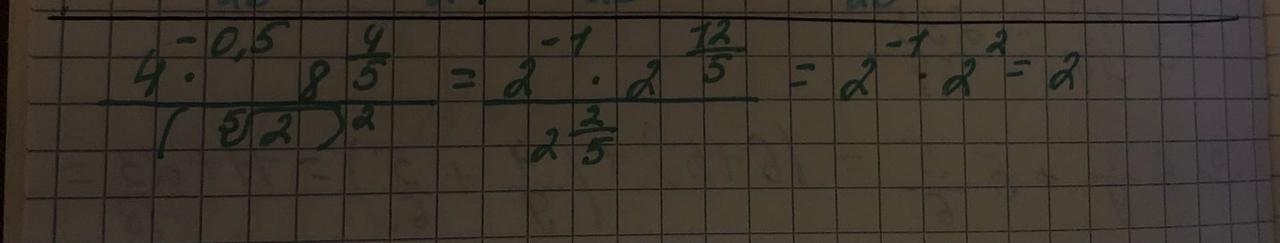 4^{-0,5} · 8^{\frac{4}{5}} / (\sqrt[5]{2})^2 = 2^{-1} · 2^{\frac{12}{5}} / 2^{\frac{2}{5}} = 2^{-1} · 2^2 = 2